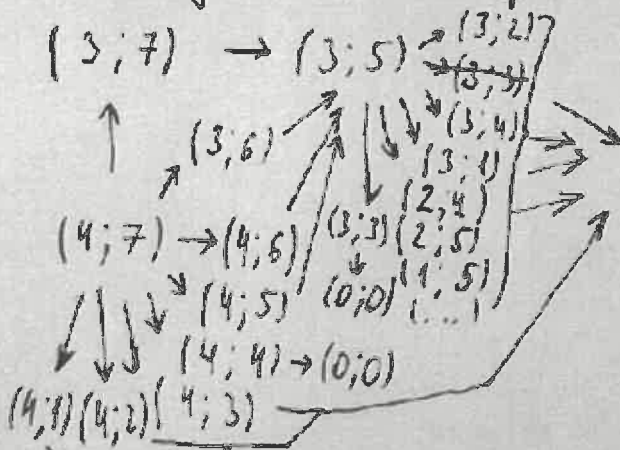 (3;7) → (3;5) → (3;2)
(3;3)
(3;6) (3;4)
(3;1)
(4;7) → (4;6) (3;3) (2;4)
(2;5)
(4;5) (0;0) (1;5)
(...)
(4;4) → (0;0)
(4;1) (4;2) (4;3)